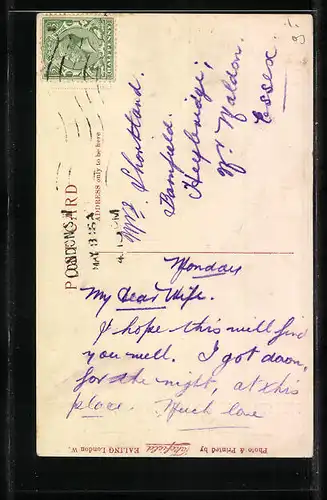 Monday
My Dear Wife.
I hope this will find
you well. I got down,
for the night, at this
place. Much love
Mrs Shortland.
Barnfield.
Heybridge,
Nr. Maldon.
Essex.
POST CARD
ADDRESS only to be here
LONDON W
MAY 13
Photo & Printed by Wakefield EALING London W.
HALFPENNY